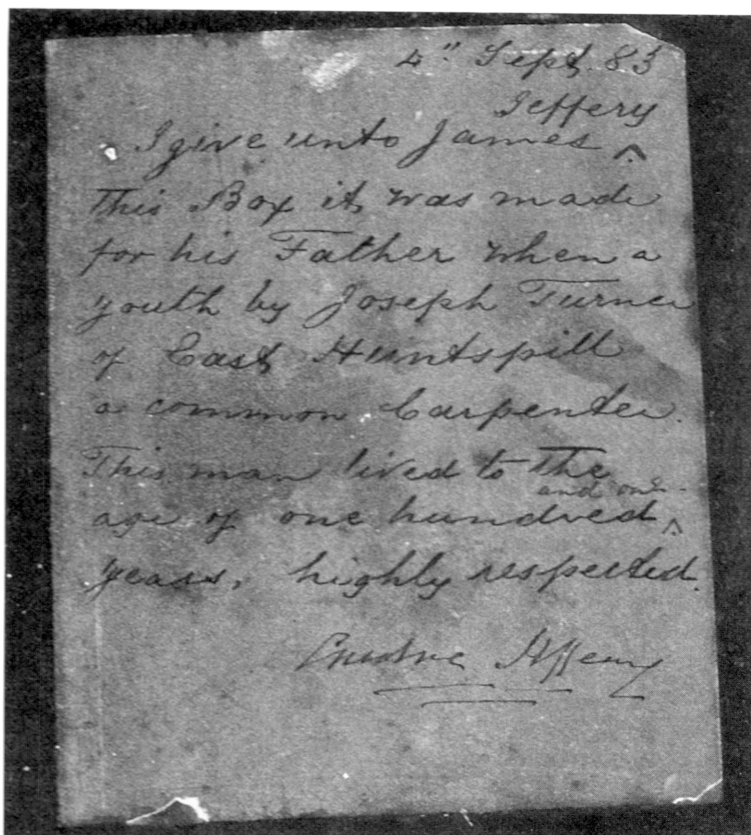 4" Sept. 83
Jeffery
I give unto James ^
This Box it was made
for his Father when a
youth by Joseph Turner
of East Huntspill
a common Carpenter.
This man lived to the
and one
age of one hundred ^
years, highly respected.